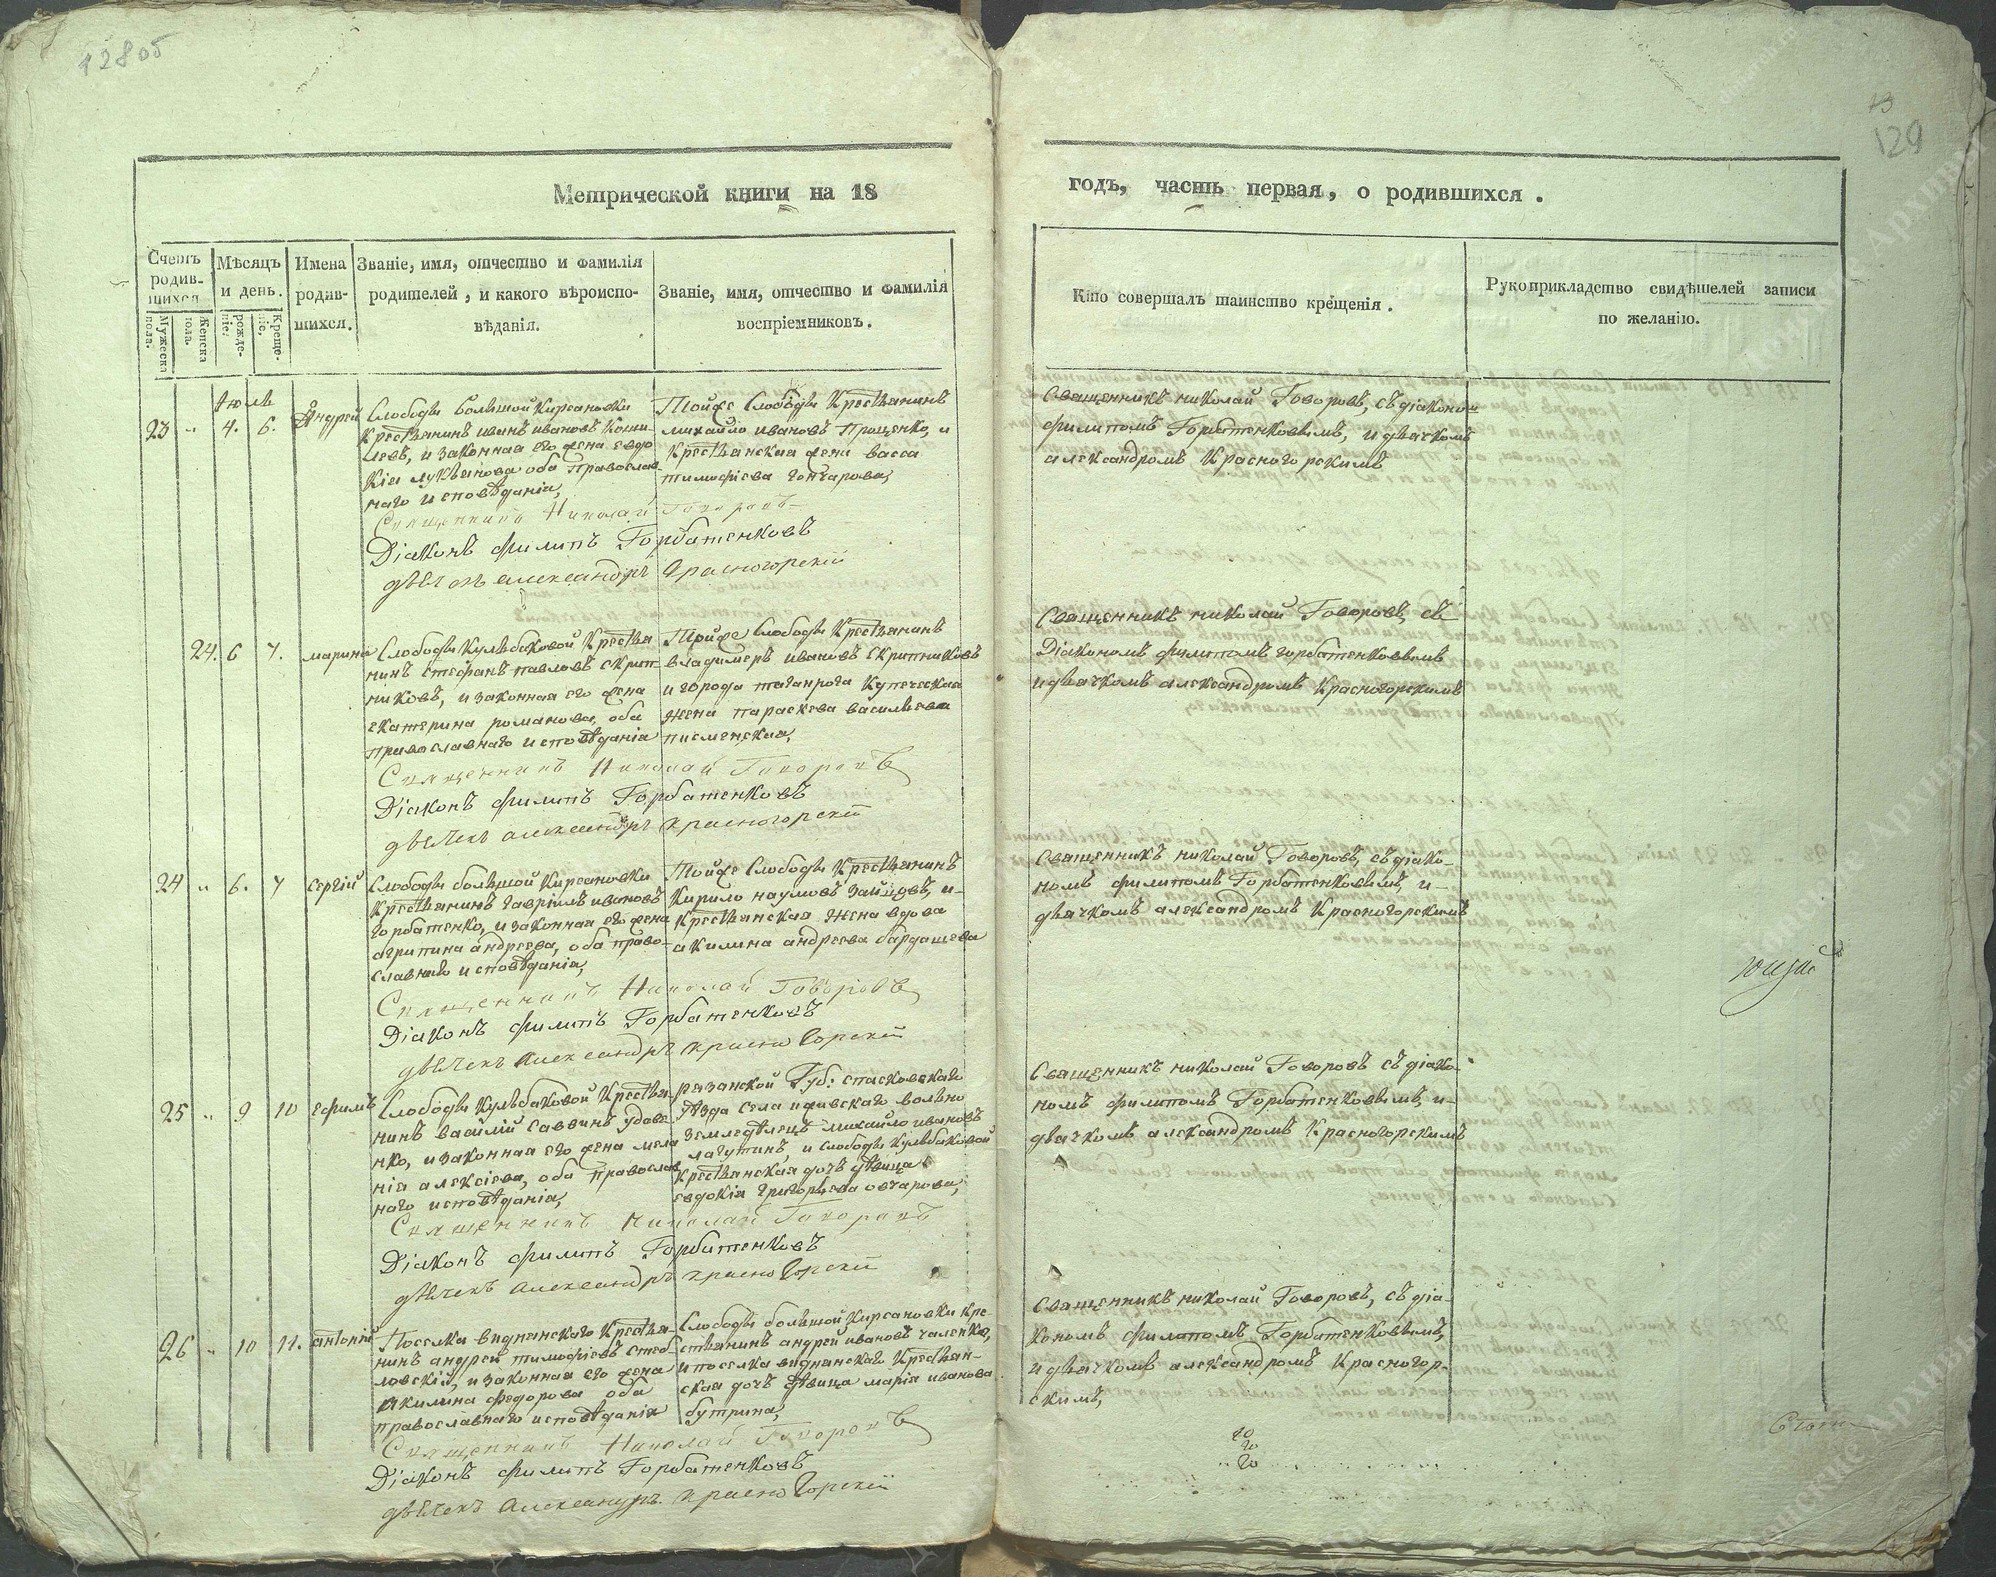 128об
13
129
Метрической книги на 18
годъ, часть первая, о родившихся.
Счетъ родив-шихся
Мужеска пола.
Женска пола.
Мѣсяцъ и день.
рожде-нія.
Креще-нія.
Имена родив-шихся.
Званіе, имя, отчество и фамилія
родителей, и какого вѣроиспо-
вѣданія.
Званіе, имя, отчество и фамилія
воспріемниковъ.
Кто совершалъ таинство крещенія.
Рукоприкладство свидѣтелей записи
по желанію.
Июль
23 " 4. 6. Андрей
Слободы большой Кирсановки
Крестьянинъ иванъ ивановъ
и законная его жена евдо
кія лукьянова оба православ
наго исповѣданія,
Тойже Слободы Крестьянинъ
михайло ивановъ Проценко, и
Крестьянская жена васса
тимофіева гончарова,
Священникъ николай Говоровъ, съ діакономъ
филипомъ Горбатенковымъ, и дьячкомъ
александромъ Красногорскимъ
Священникъ Николай Говоровъ
Діаконъ филипъ Горбатенковъ
дьячекъ александръ Красногорскій
24. 6 7. марина
Слободы Кульбаковой Крестья
нинъ стефанъ павловъ скрип
никовъ, и законная его жена
екатерина романова, оба
православнаго исповѣданія
Тойже Слободы Крестьянинъ
владимеръ ивановъ Скрипниковъ
и города таганрога Купеческая
жена параскева васильева
писменская,
Священникъ николай Говоровъ, съ
Діакономъ филипомъ горбатенковымъ
и дьячкомъ александромъ Красногорскимъ
Священникъ Николай Говоровъ
Діаконъ филипъ Горбатенковъ
дьячекъ александръ красногорскій
24 " 6. 7 Сергій
Слободы большой Кирсановки
Крестьянинъ гавріилъ ивановъ
горбатенко, и законная его жена
агрипина андреева, оба право-
славнаго исповѣданія,
Тойже Слободы Крестьянинъ
Кирило наумовъ зайцовъ, и-
Крестьянская жена вдова
акилина андреева бардашева
Священникъ николай Говоровъ, съ діако-
номъ филипомъ Горбатенковымъ, и-
дьячкомъ александромъ Красногорскимъ
Священникъ Николай Говоровъ
Діаконъ филипъ Горбатенковъ
дьячекъ Александръ красногорскій
25 " 9 10 ефимъ
Слободы Кульбаковой Крестья-
нинъ василій саввинъ удове
нко, и законная его жена мела
нія алексіева, оба православ
наго исповѣданія,
рязанской Губ: спасковскаго
уѣзда села ижевскаго вольно
земледѣлецъ михайло ивановъ
лагутинъ, и слободы Кульбаковой
Крестьянская дочь дѣвица
евдокія григорьева овчарова,
Священникъ николай Говоровъ съ діако-
номъ филипомъ Горбатенковымъ, и-
дьячкомъ александромъ Красногорскимъ
Священникъ Николай Говоровъ
Діаконъ филипъ Горбатенковъ
дьячекъ Александръ красногорскій
26 " 10 11. антоній
Поселка виднянскаго Крестья-
нинъ андрей тимофіевъ
и законная его жена
Акилина федорова оба
православнаго исповѣданія
Слободы большой Кирсановки Кре-
стьянинъ андрей ивановъ чаленко,
и поселка виднянскаго Крестьян-
ская дочь дѣвица марія иванова
бутрина,
Священникъ николай Говоровъ, съ діа-
кономъ филипомъ Горбатенковымъ,
и дьячкомъ александромъ Красногор-
скимъ,
Священникъ Николай Говоровъ
Діаконъ филипъ Горбатенковъ
дьячекъ Александръ красногорскій